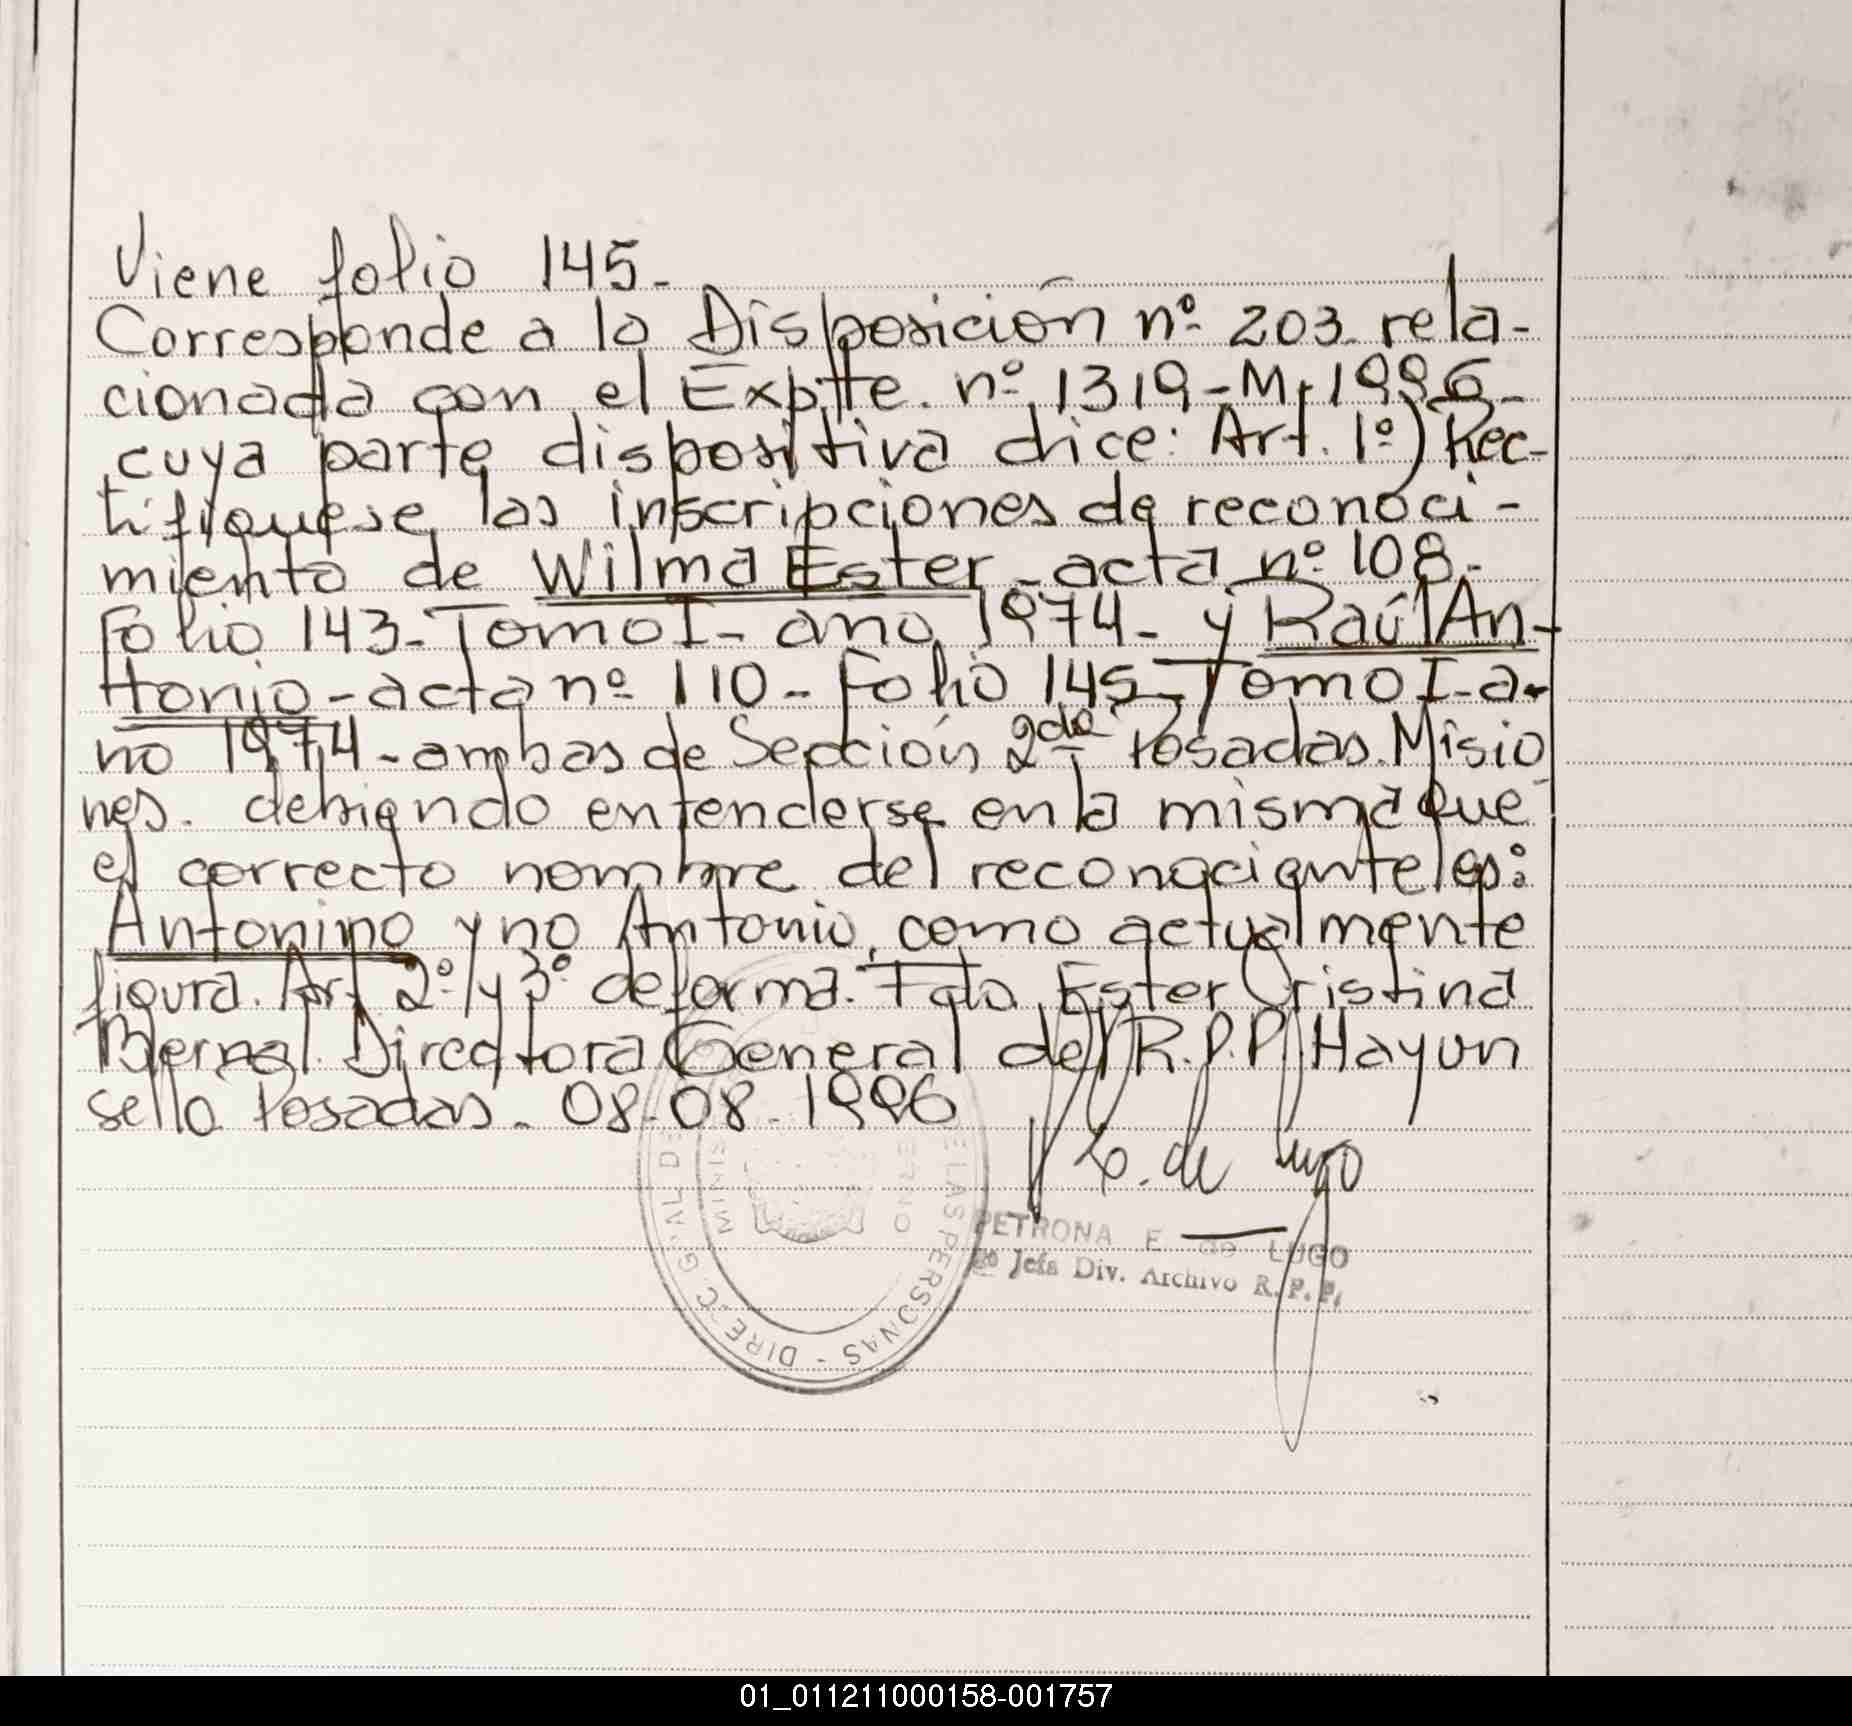 Viene folio 145.-
Corresponde a la Disposición nº 203. rela-
cionada con el Expte. nº 1319-M-1996-
cuya parte dispositiva dice: Art. 1º) Rec-
tifiquese las inscripciones de reconoci-
miento de Wilma Ester - acta nº 108-
Folio 143- Tomo I- año 1974- y Raúl An-
tonio - acta nº 110 - Folio 145- Tomo I- a-
ño 1974 - ambas de Sección 2da Posadas. Misio
nes. debiendo entenderse en la misma que
el correcto nombre del reconociente es:
Antonino y no Antonio, como actualmente
figura. Art 2º y 3º de forma. Fdo. Ester Cristina
Bernal. Directora General del R.P.P. Hay un
sello. Posadas. 08-08-1996
E. de Lugo
PETRONA E de LUGO
Jefa Div. Archivo R. P. P.
DIREC. G'AL DE LAS PERSONAS -
MINIS ERNO
01_011211000158-001757